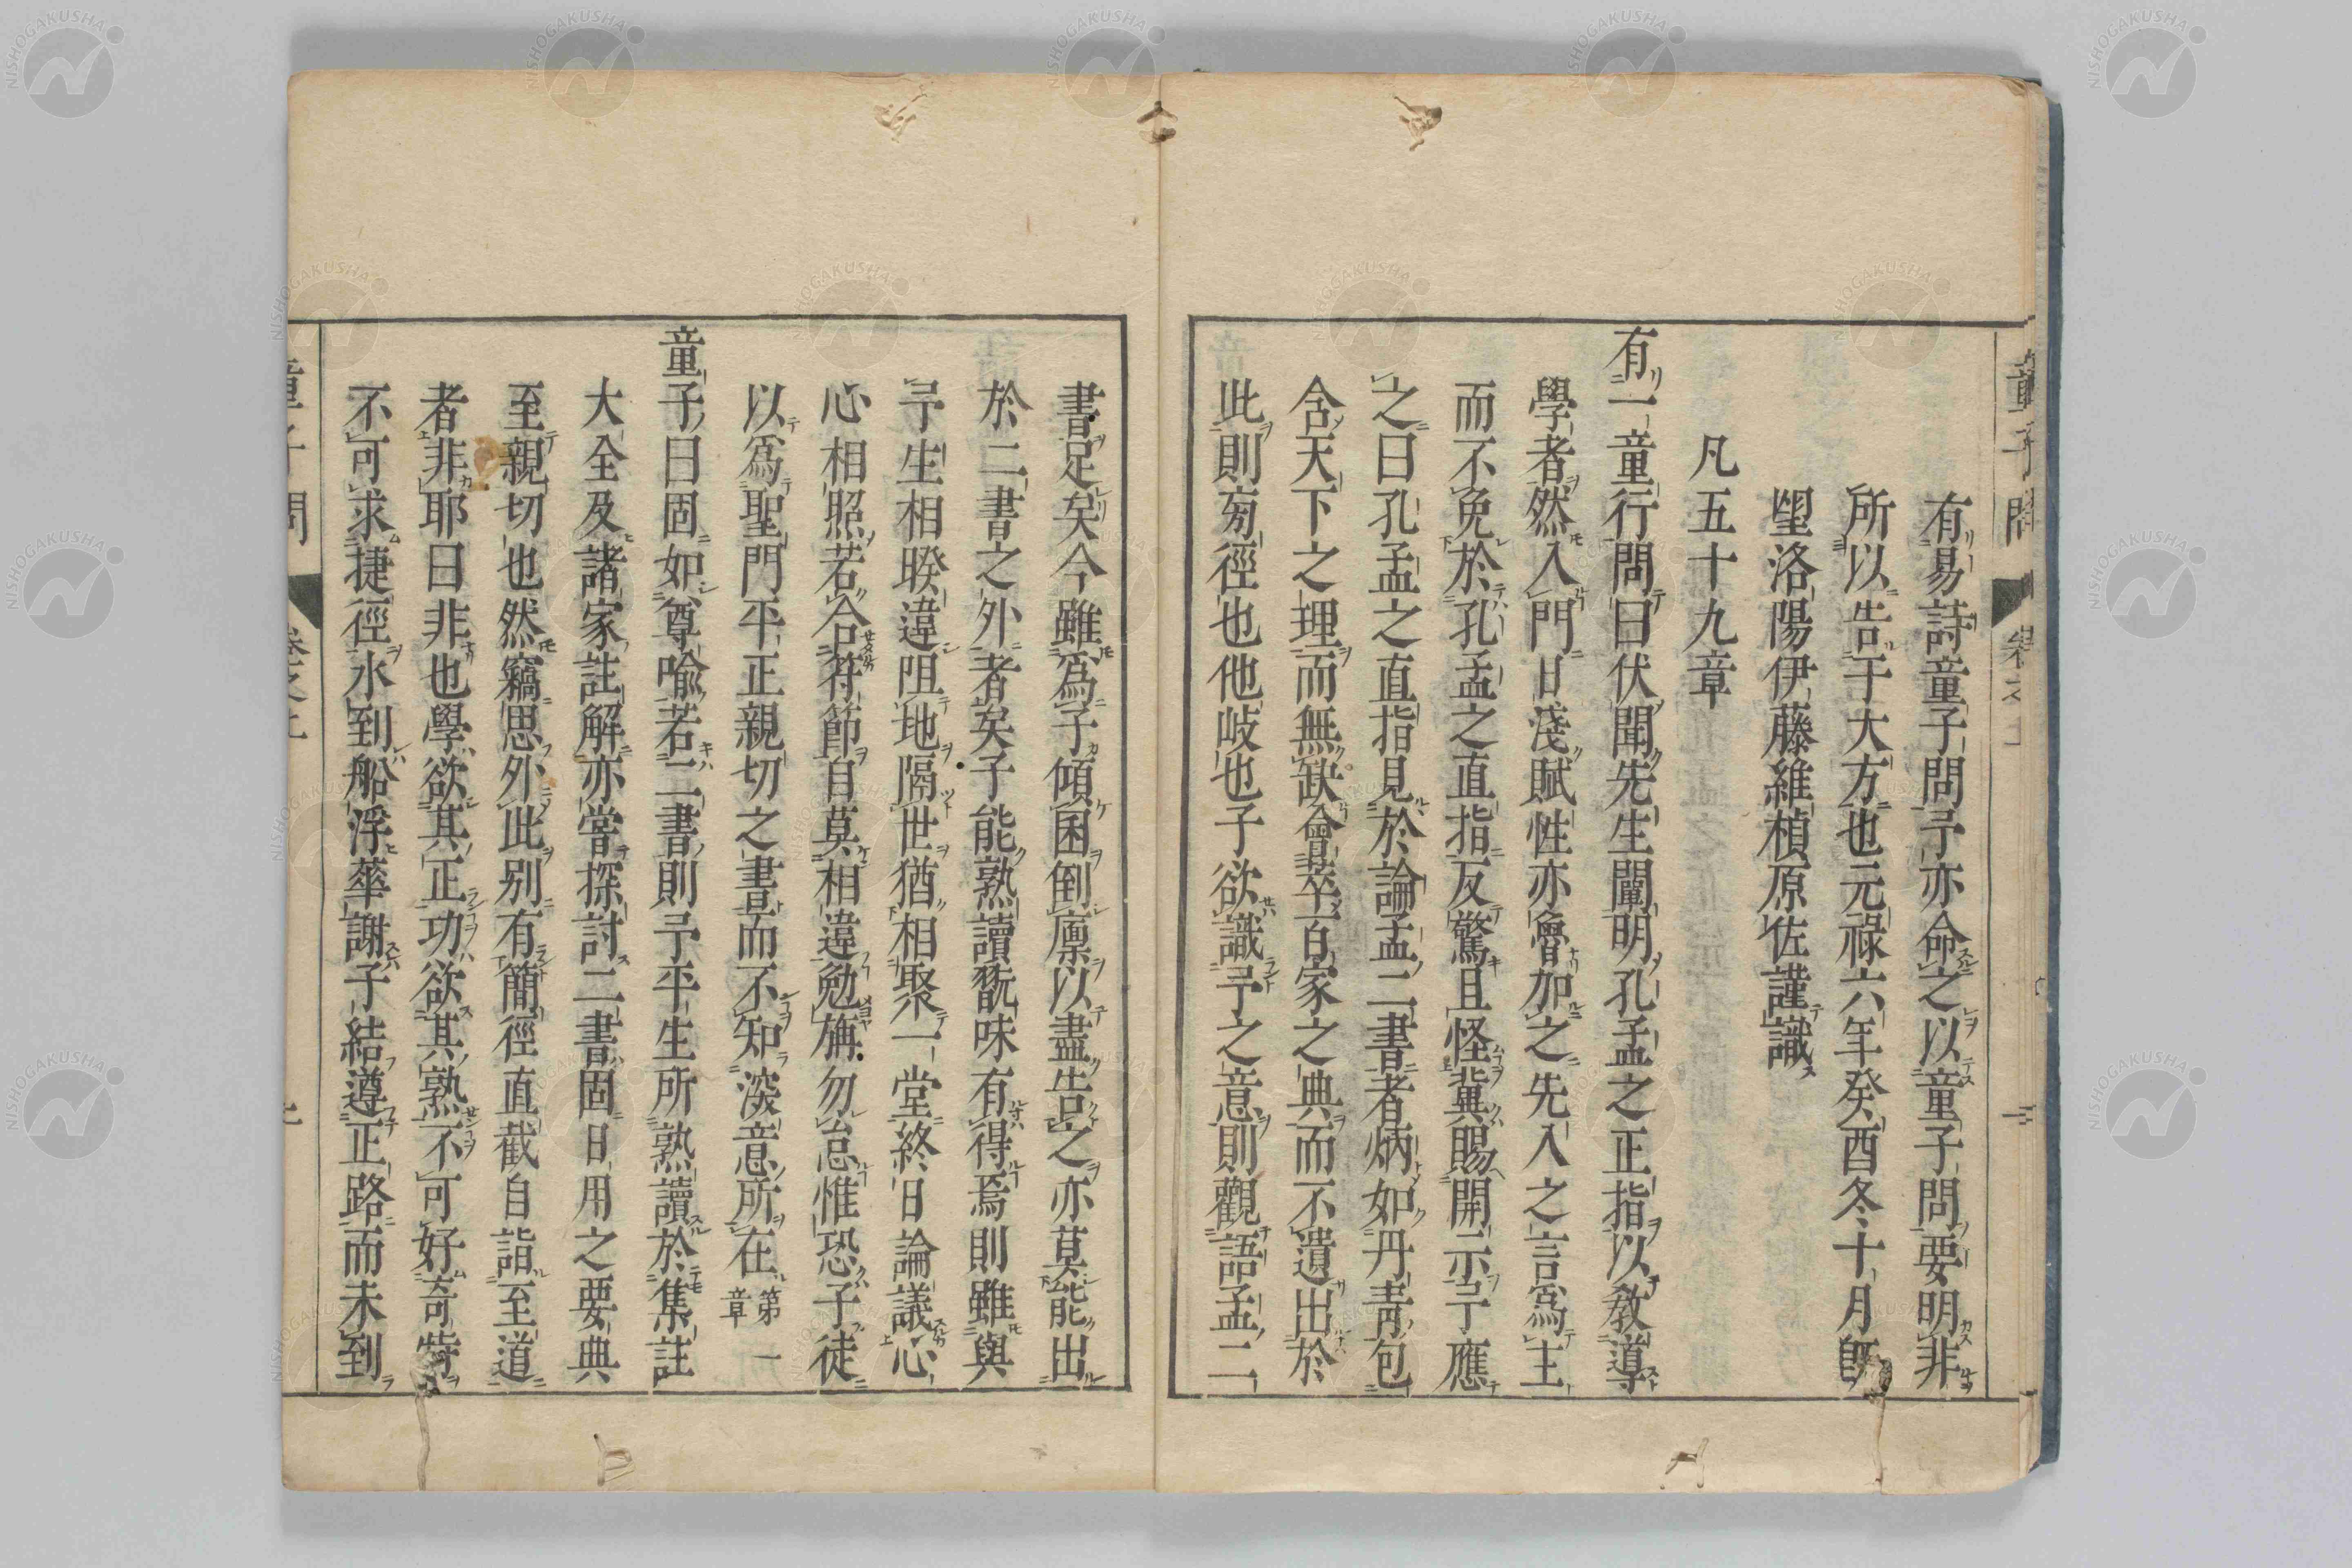 有易詩童子問予亦命之以童子問要明非
所以告于大方也元祿六年癸酉冬十月旣
望洛陽伊藤維楨原佐謹識
凡五十九章
有一童行問曰伏聞先生闡明孔孟之正指以教導
學者然入門日淺賦性亦魯加之先入之言爲主
而不免於孔孟之直指反驚且怪冀賜開示予應
之曰孔孟之直指見於論孟二書者炳如丹靑包
含天下之理而無缺會萃百家之典而不遺出於
此則旁徑也他岐也子欲識予之意則觀語孟二
書足矣今雖爲子傾囷倒廩以盡告之亦莫能出
於二書之外者矣子能熟讀翫味有得焉則雖與
予生相暌違阻地隔世猶相聚一堂終日論議心
心相照若合符節自莫相違勉旃勿怠惟恐子徒
以爲聖門平正親切之書而不知深意所在 第一章
童子曰固如尊喩若二書則予平生所熟讀於集註
大全及諸家註解亦嘗探討二書固日用之要典
至親切也然竊思外此別有簡徑直截自詣至道
者非耶曰非也學欲其正功欲其熟不可好奇特
不可求捷徑水到船浮華謝子結遵正路而未到
童子問 卷之上 二
童子問
NISHOGAKUSHA